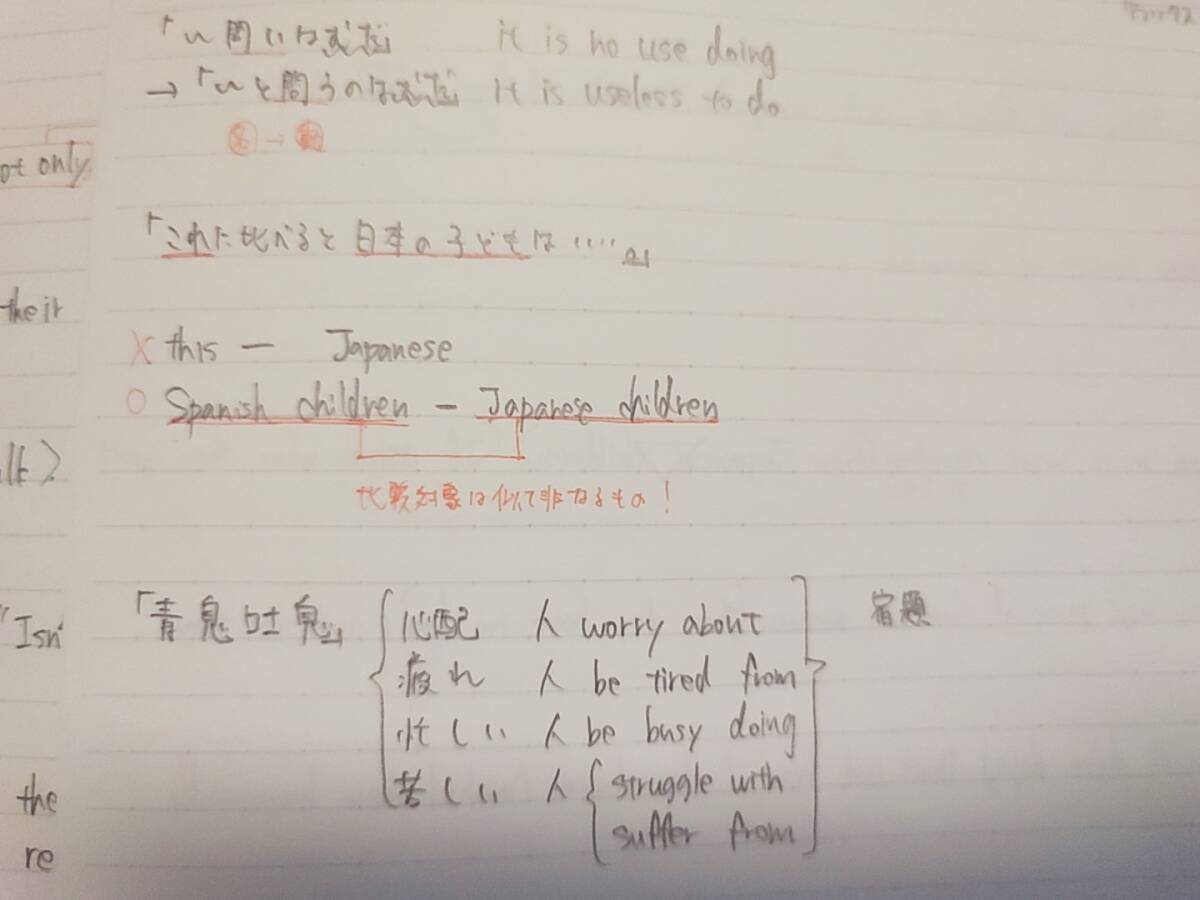 「〜問いはむだ」 it is no use doing
→「〜と問うのはむだ」 it is useless to do
名→動
ot only
「これに比べると日本の子どもは‥‥」
their
× this — Japanese
○ Spanish children — Japanese children
比較対象は似て非なるもの!
「青息吐息」
心配 人 worry about
疲れ 人 be tired from
忙しい 人 be busy doing
苦しい 人 struggle with
suffer from
宿題
"Isn'
the
re